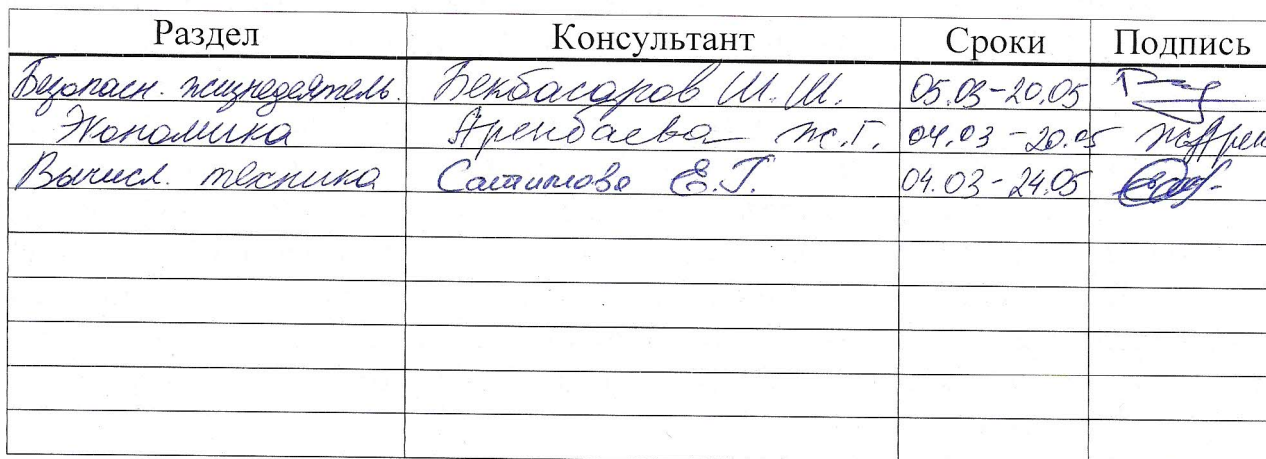 Раздел Консультант Сроки Подпись
Безопасн. жизнедеятель. Бекбасаров Ш.Ш. 05.03-20.05
Экономика Аренбаева Ж.Г. 04.03-20.05
Вычисл. техника Сатимова Е.Г. 04.03-24.05